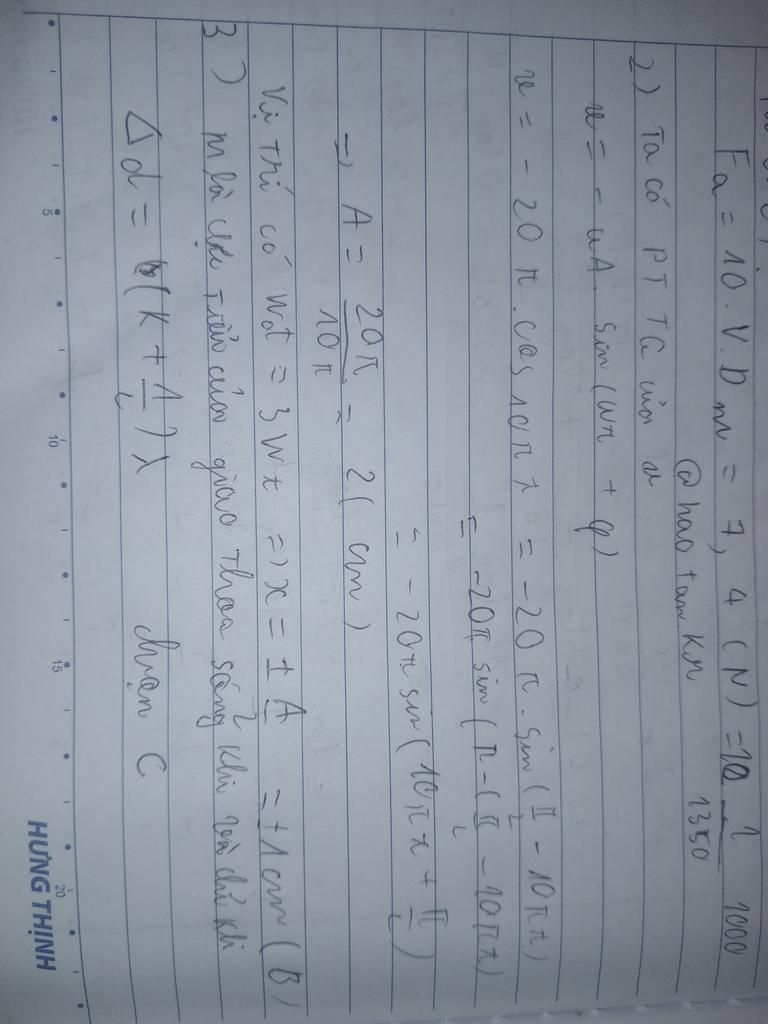 Fa = 10. V. D m = 7,4 (N) = 10 1/1350 1000
@hao tan Km
2) Ta có PT Tq của v
v = - ωA. sin(ωt + φ)
v = - 20 π. cos 10π t = -20 π. sin(π/2 - 10πt)
= -20π sin(π-(π/2 - 10πt)
= - 20π sin(10πt + π/2)
=> A = 20π/10π = 2 (cm)
Vị trí có Wđ = 3Wt => x = ± A/2 = ±1cm (B)
3) M là cực tiểu của giao thoa sóng khi và chỉ khi
Δd = (k + 1/2) λ chọn C
5 10 15 20
HƯNG THỊNH